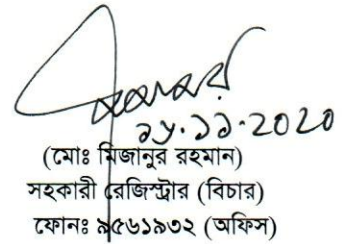 ১৮.১১.2020
(মোঃ মিজানুর রহমান)
সহকারী রেজিস্ট্রার (বিচার)
ফোনঃ ৯৫৬১৯৩২ (অফিস)